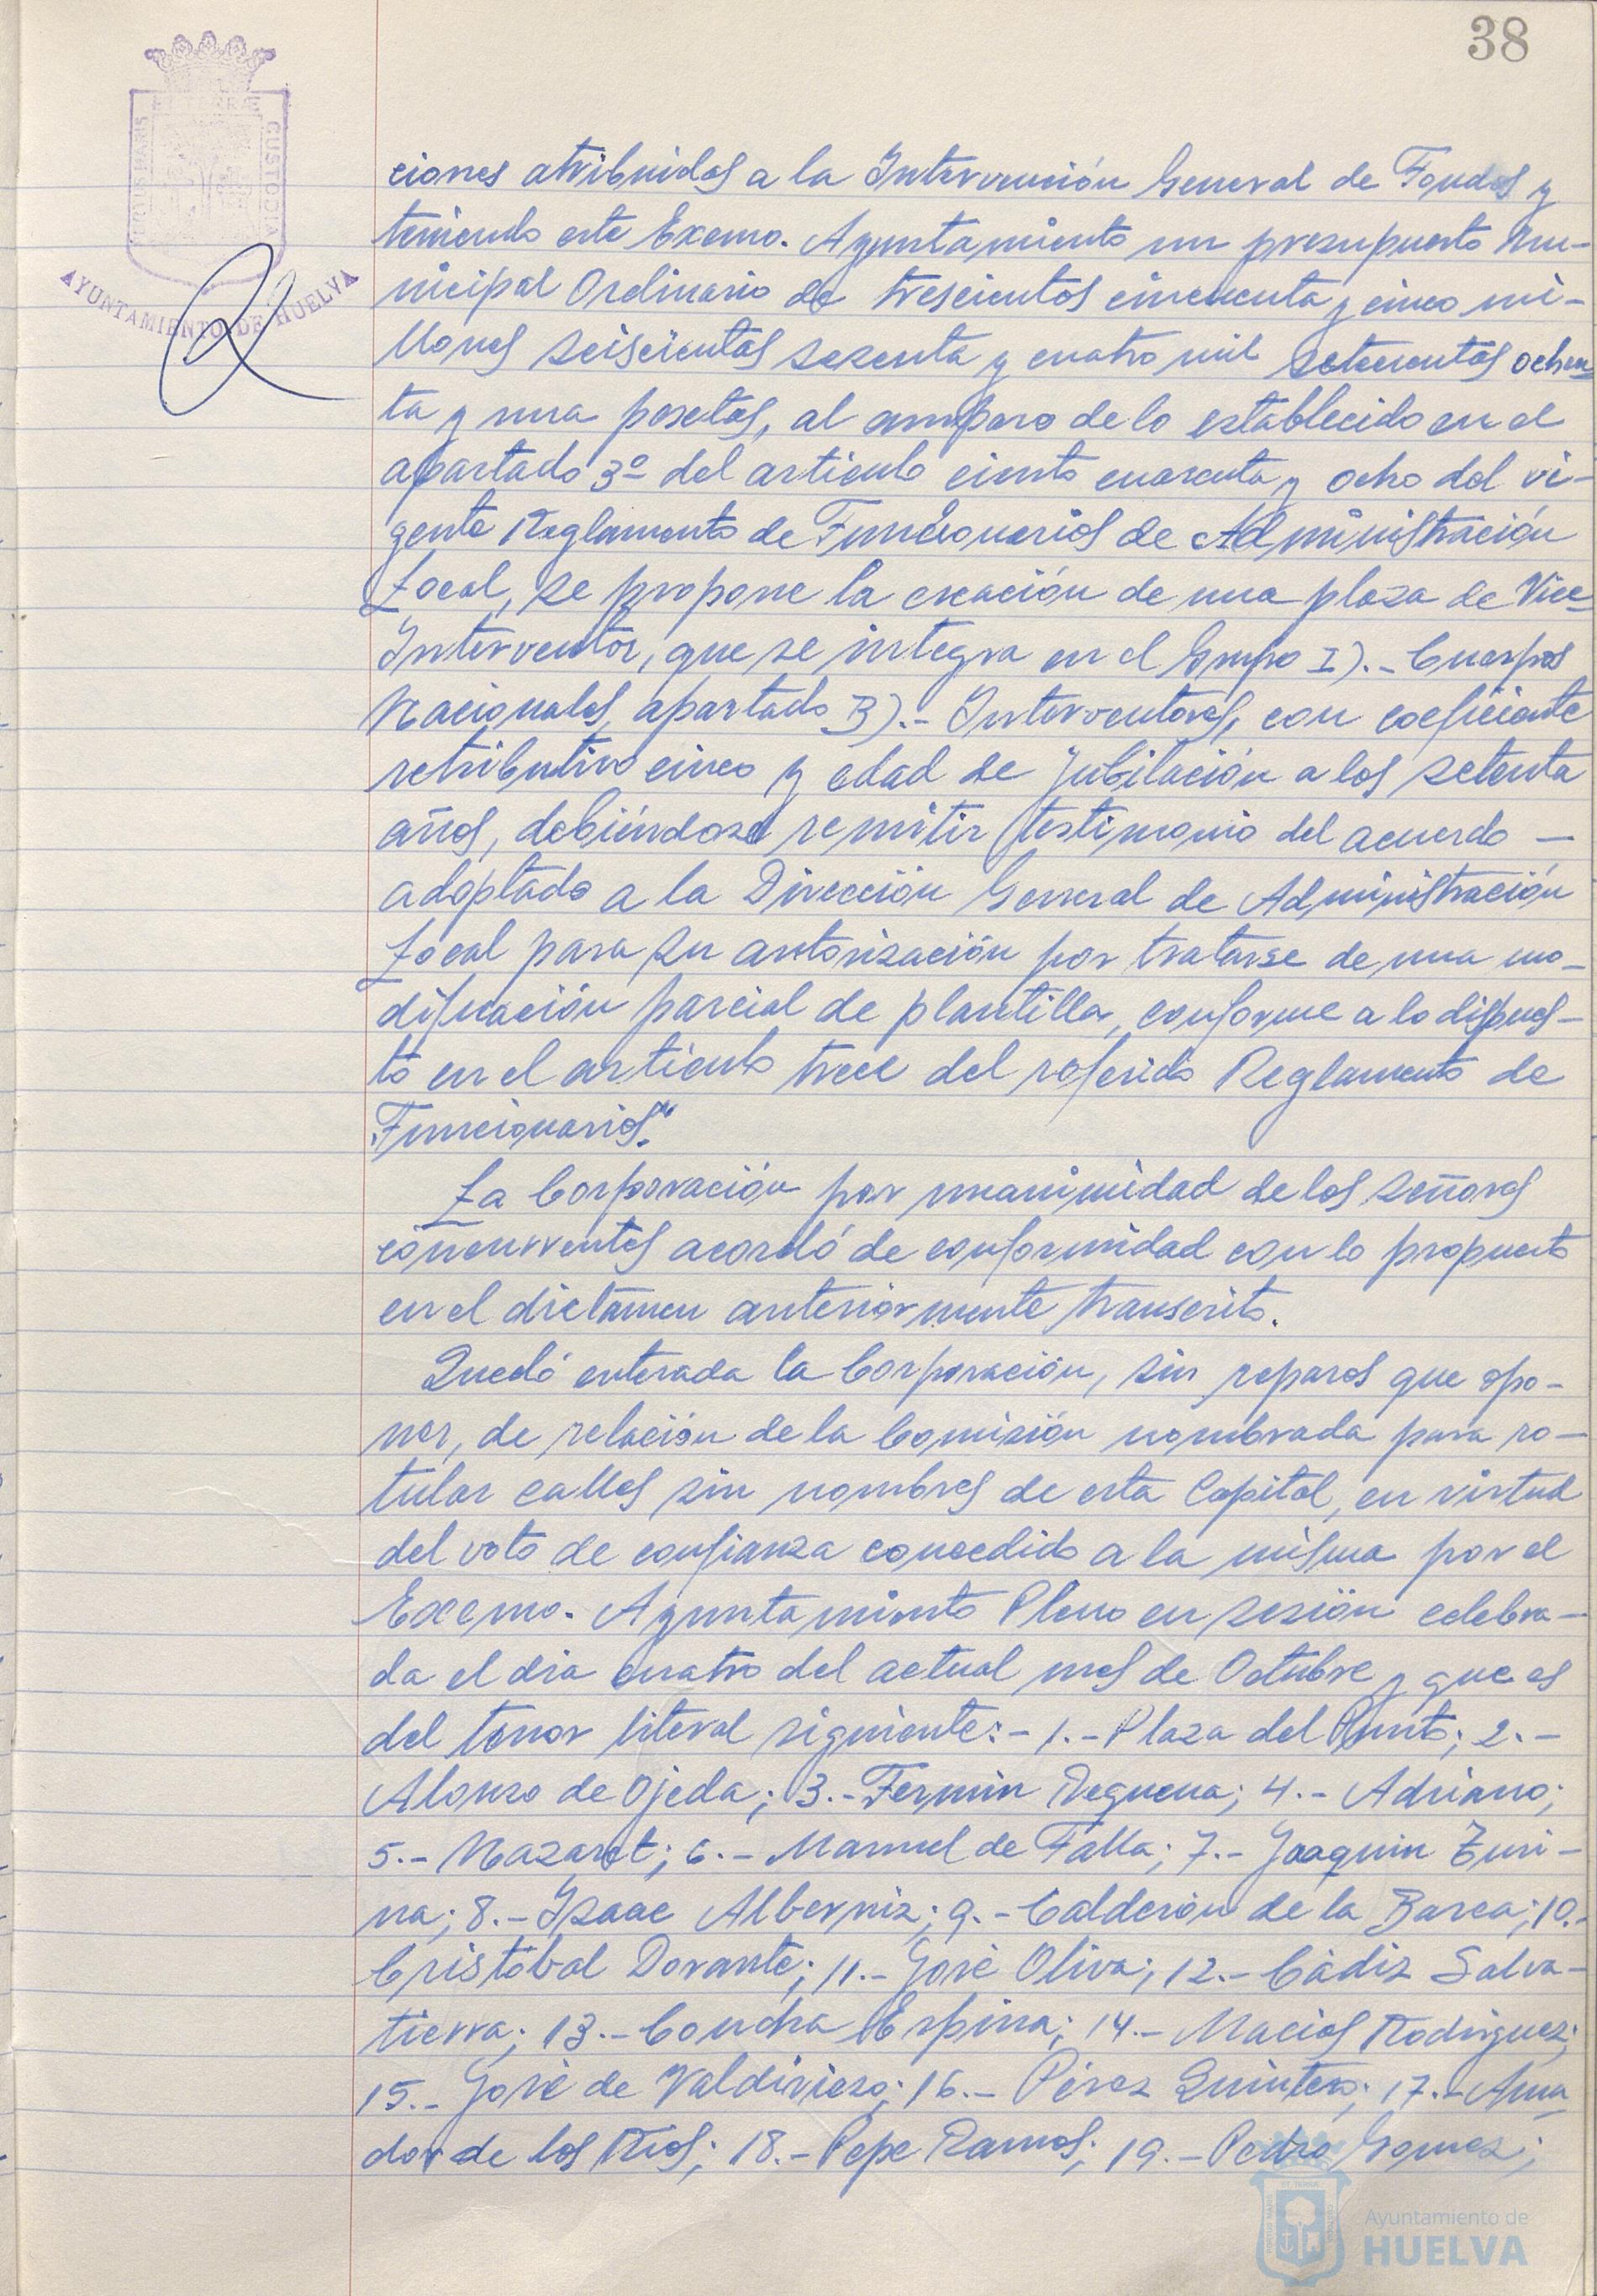 38
PORTUS MARIS ET TERRÆ CUSTODIA
AYUNTAMIENTO DE HUELVA
ciones atribuidas a la Intervención General de Fondos y
teniendo este Excmo. Ayuntamiento un presupuesto Mu-
nicipal Ordinario de trescientos cincuenta y cinco mi-
llones seiscientas sesenta y cuatro mil setecientas ochen-
ta y una pesetas, al amparo de lo establecido en el
apartado 3º del articulo ciento cuarenta y ocho del vi-
gente Reglamento de Funcionarios de Administración
Local, se propone la creación de una plaza de Vice-
Interventor, que se integra en el Grupo I).- Cuerpos
Nacionales, apartado B).- Interventores, con coeficiente
retributivo cinco y edad de jubilación a los setenta
años, debiéndose remitir testimonio del acuerdo -
adoptado a la Dirección General de Administración
Local para su autorización por tratarse de una mo-
dificación parcial de plantilla, conforme a lo dispues-
to en el articulo trece del referido Reglamento de
Funcionarios."
La Corporación por unanimidad de los señores
concurrentes acordó de conformidad con lo propuesto
en el dictamen anteriormente transcrito.
Quedó enterada la Corporación, sin reparos que opo-
ner, de relación de la Comisión nombrada para ro-
tular calles sin nombres de esta Capital, en virtud
del voto de confianza concedido a la misma por el
Excmo. Ayuntamiento Pleno en sesión celebra-
da el dia cuatro del actual mes de Octubre y que es
del tenor literal siguiente:- 1.- Plaza del Punto; 2.-
Alonso de Ojeda; 3.- Fermin Requena; 4.- Adriano;
5.- Nazaret; 6.- Manuel de Falla; 7.- Joaquin Turi-
na; 8.- Isaac Alberniz; 9.- Calderón de la Barca; 10.-
Cristóbal Dorante; 11.- José Oliva; 12.- Cádiz Salva-
tierra; 13.- Concha Espina; 14.- Macias Rodriguez;
15.- José de Valdivieso; 16.- Pérez Quintero; 17.- Ama-
dor de los Rios; 18.- Pepe Ramos; 19.- Pedro Gomez;
Ayuntamiento de
HUELVA